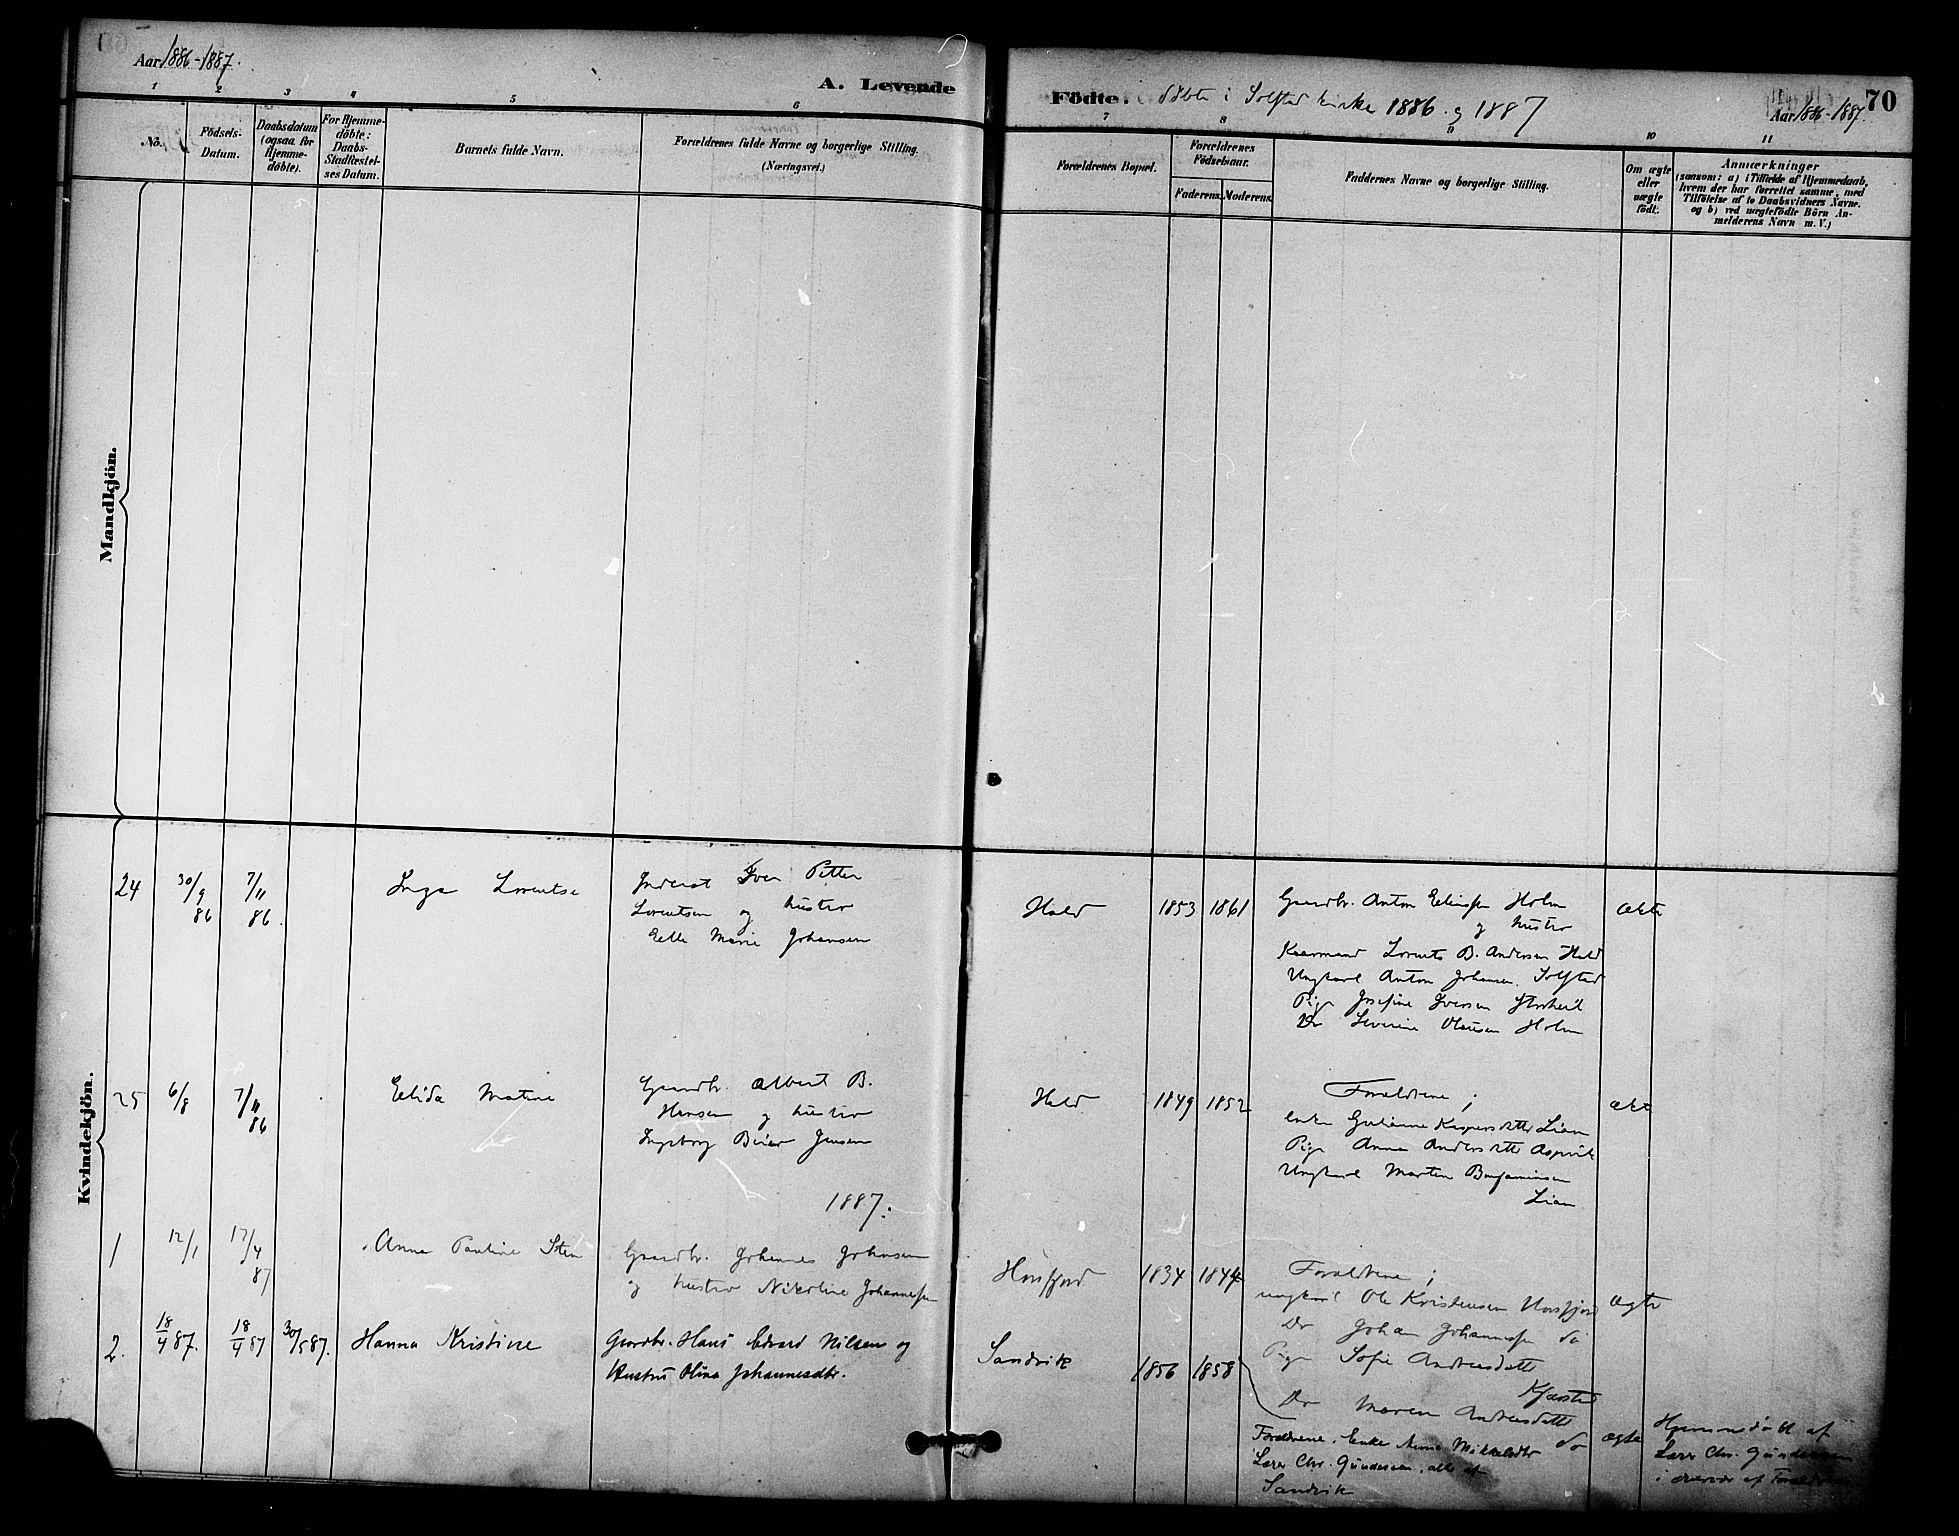 Aar 1886-1887.
A. Levende
Födte. döbte i Solstad Kirke 1886 og 1887
70
Aar 1886-1887.
1 2 3 4 5 6
7 8 9 10 11
No.
Födsels-
Datum.
Daabsdatum
(ogsaa for
Hjemme-
döbte).
For Hjemme-
döbte:
Daabs-
Stadfæstel-
ses Datum.
Barnets fulde Navn.
Forældrenes fulde Navne og borgerlige Stilling.
(Næringsvei.)
Forældrenes Bopæl.
Forældrenes
Födselsaar.
Faderens. Moderens.
Faddernes Navne og borgerlige Stilling.
Om ægte
eller
uægte
født.
Anmærkninger
(saasom: a) i Tilfælde af Hjemmedaab,
hvem der har forrettet samme, med
Tilföielse af to Daabsvidners Navne.
og b) ved uægtefödte Börn An-
melderens Navn m.V.)
Mandkjön.
Kvindekjön.
24
30/9
86
7/11
86.
Inga Lorentse
Inderst Iver Petter
Lorentsen og hustro
Marie Johansen
Hald
1853 1861
Gaardbr. Anton Holm
og hustro
Kaarmand Lorents B. Andersen Hald
Ungkarl Anton Johansen Solstad
Pige Josefine Iversen
Do Severine Olausen Holm
ækte
25
6/8
7/11
86
Elida Matine
Gaardbr. Albert B.
Hansen og hustro
Ingeborg Beier Jensen
Hald
1849 1852
Forældrene;
Enke Kaspersdatter Lian
Pige Anna Andersdatter Aspvik
Ungkarl Morten Benjaminsen
Lian
ækte
1887.
1
12/1
17/4
87
Anna Pauline Sten
Gaardbr. Johannes Johansen
og hustro Nikoline Johannesen
Horsfjord
1834 1844
Forældrene;
ungkarl Ole Kristensen Horsfjord
Do Johan Johannesen do
Pige Sofie Andreasdatter
Kjærstad
Do Maren Andreasdatter
do
ægte
2.
18/4 87.
18/4 87
30/5 87.
Hanna Kristine
Gaardbr. Hans Edvard Nilsen og
Hustru Olina Johannesdtr.
Sandvik
1856 1858
Forældrene, Enke Anna Mikkelsdtr
Lærer Chr. Gundersen, alle af
Sandvik
ægte
Hjemmedöbt af
Lærer Chr. Gundersen
i overvær af Forældrene